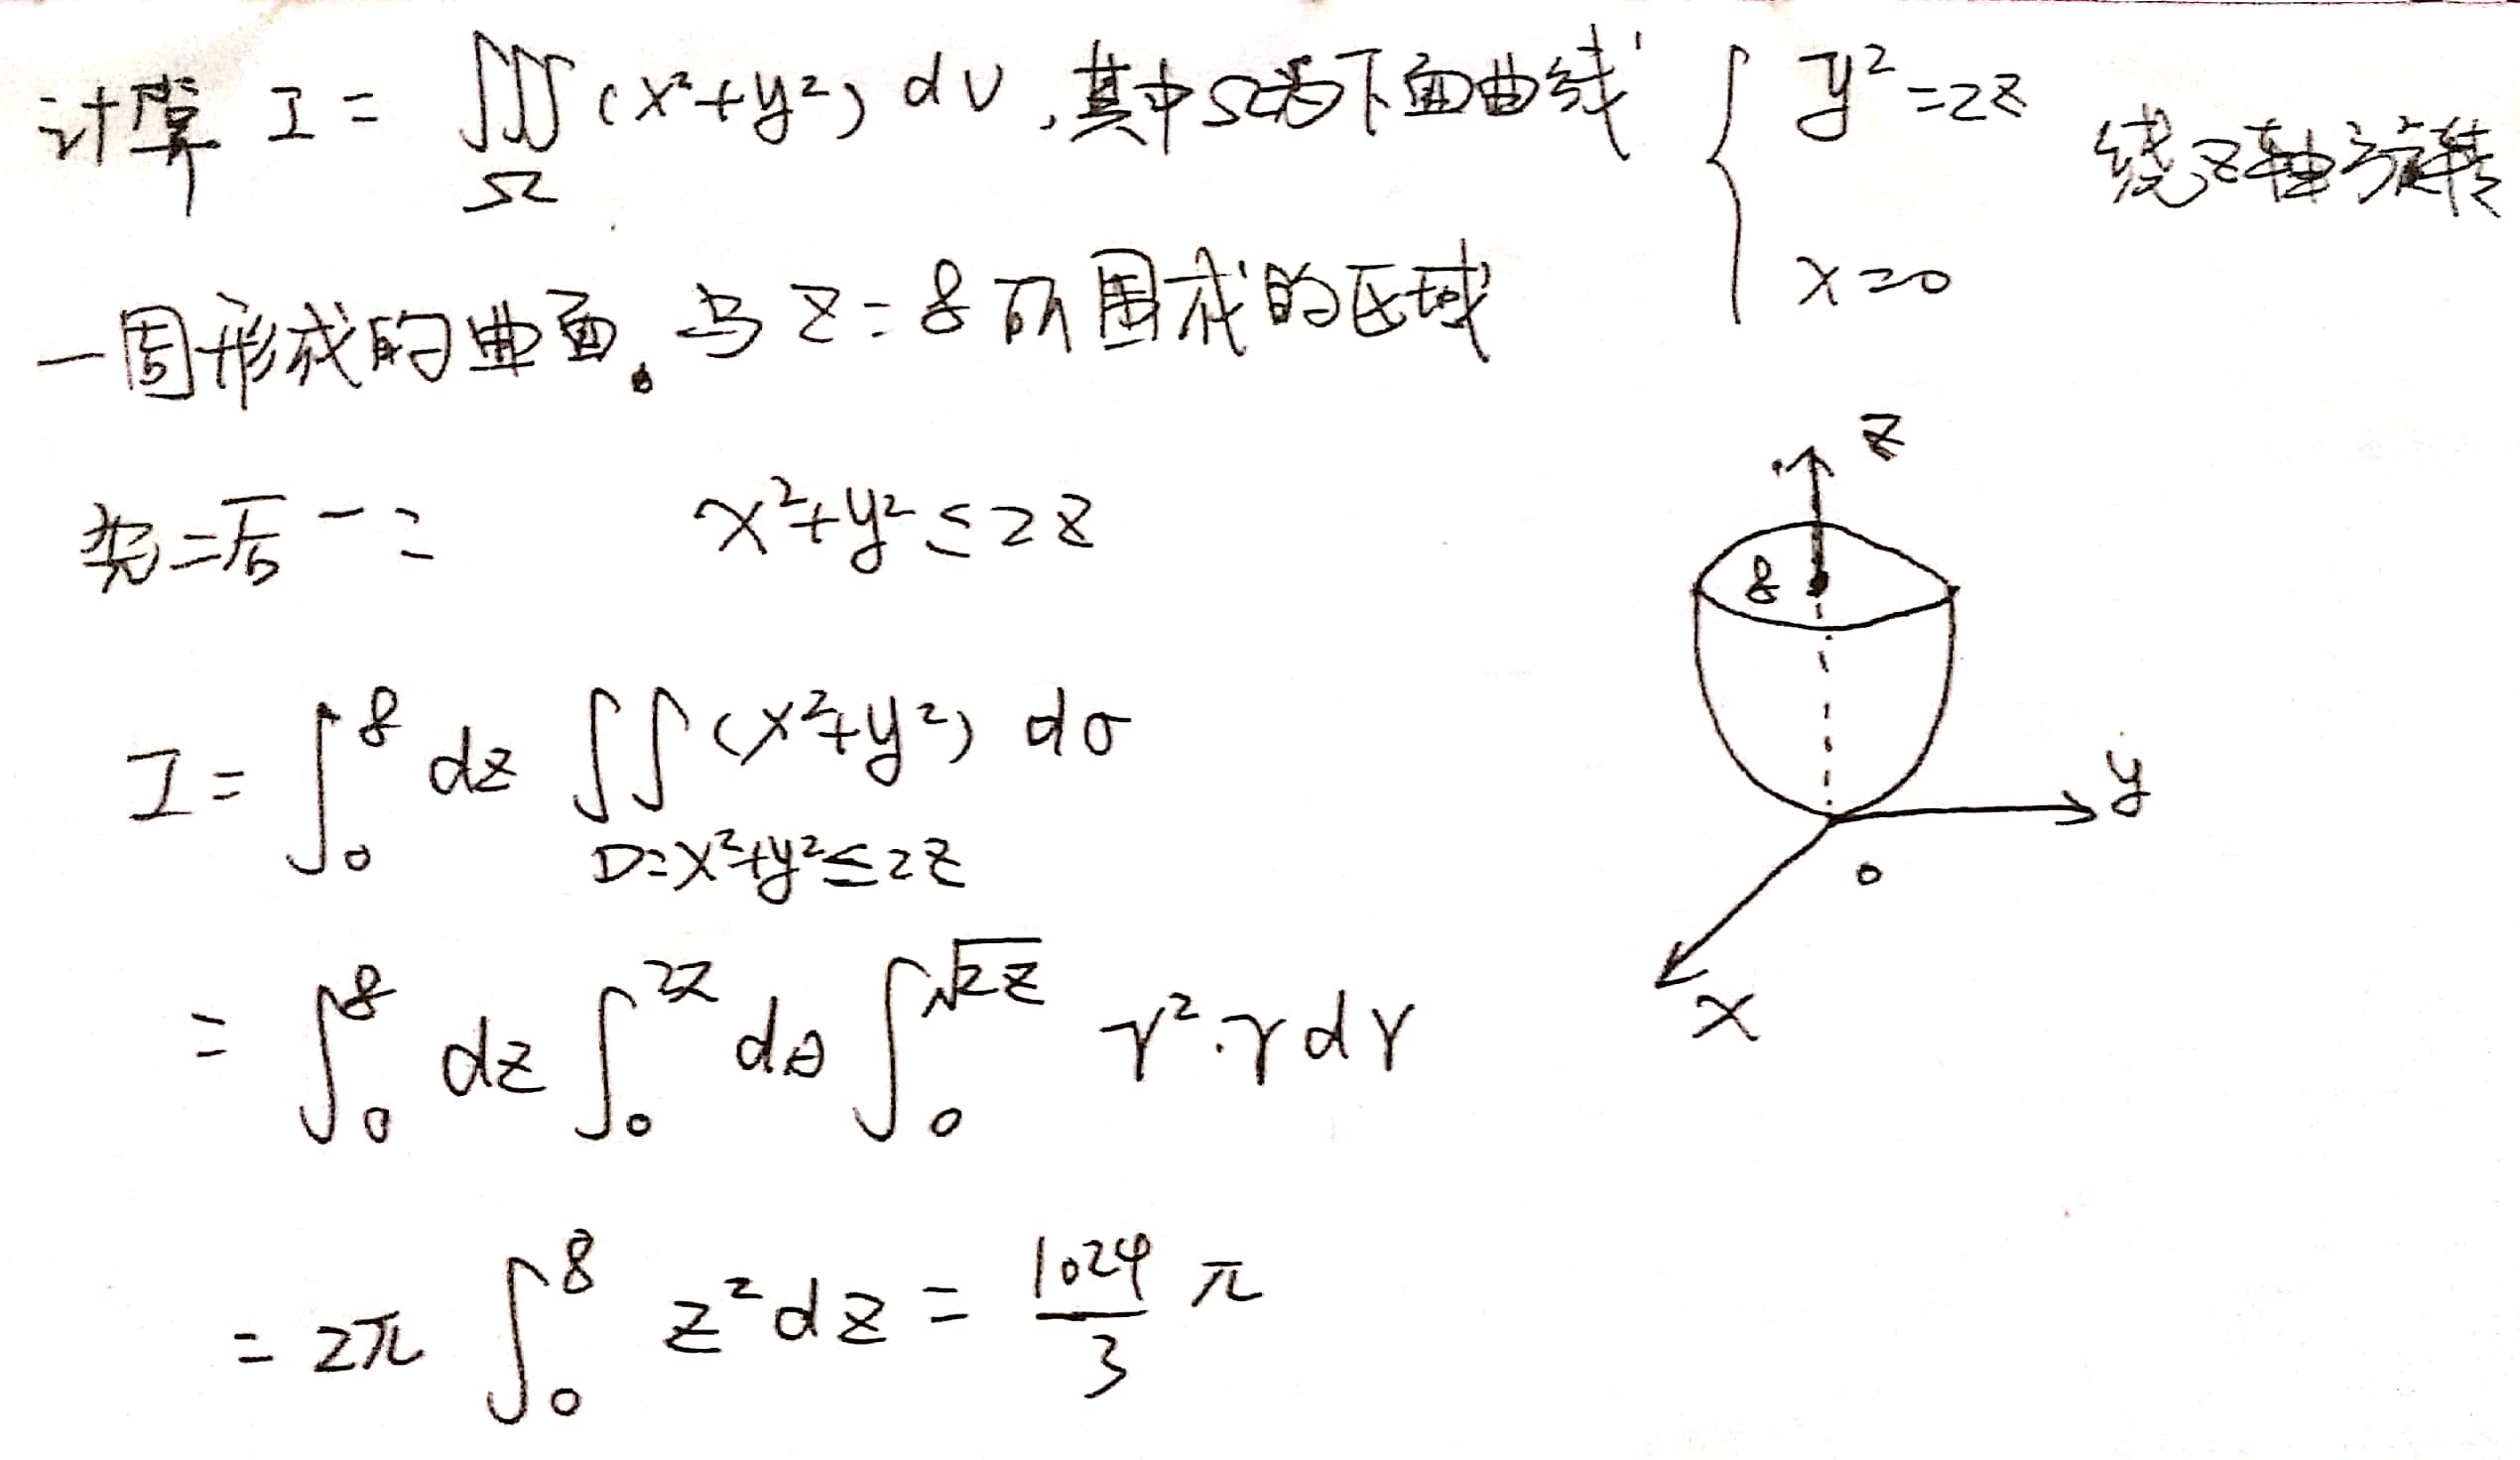 计算 I = ∭_Ω (x²+y²) dv,其中Ω为下面曲线 { y²=2z
x=0 绕z轴旋转
一周形成的曲面。与 z=8 所围成的区域
先二后一: x²+y²≤2z
I = ∫₀⁸ dz ∬_{D:x²+y²≤2z} (x²+y²) dσ
= ∫₀⁸ dz ∫₀^{2π} dθ ∫₀^{√2z} r²·r dr
= 2π ∫₀⁸ z² dz = 1024/3 π
z
8
y
0
x